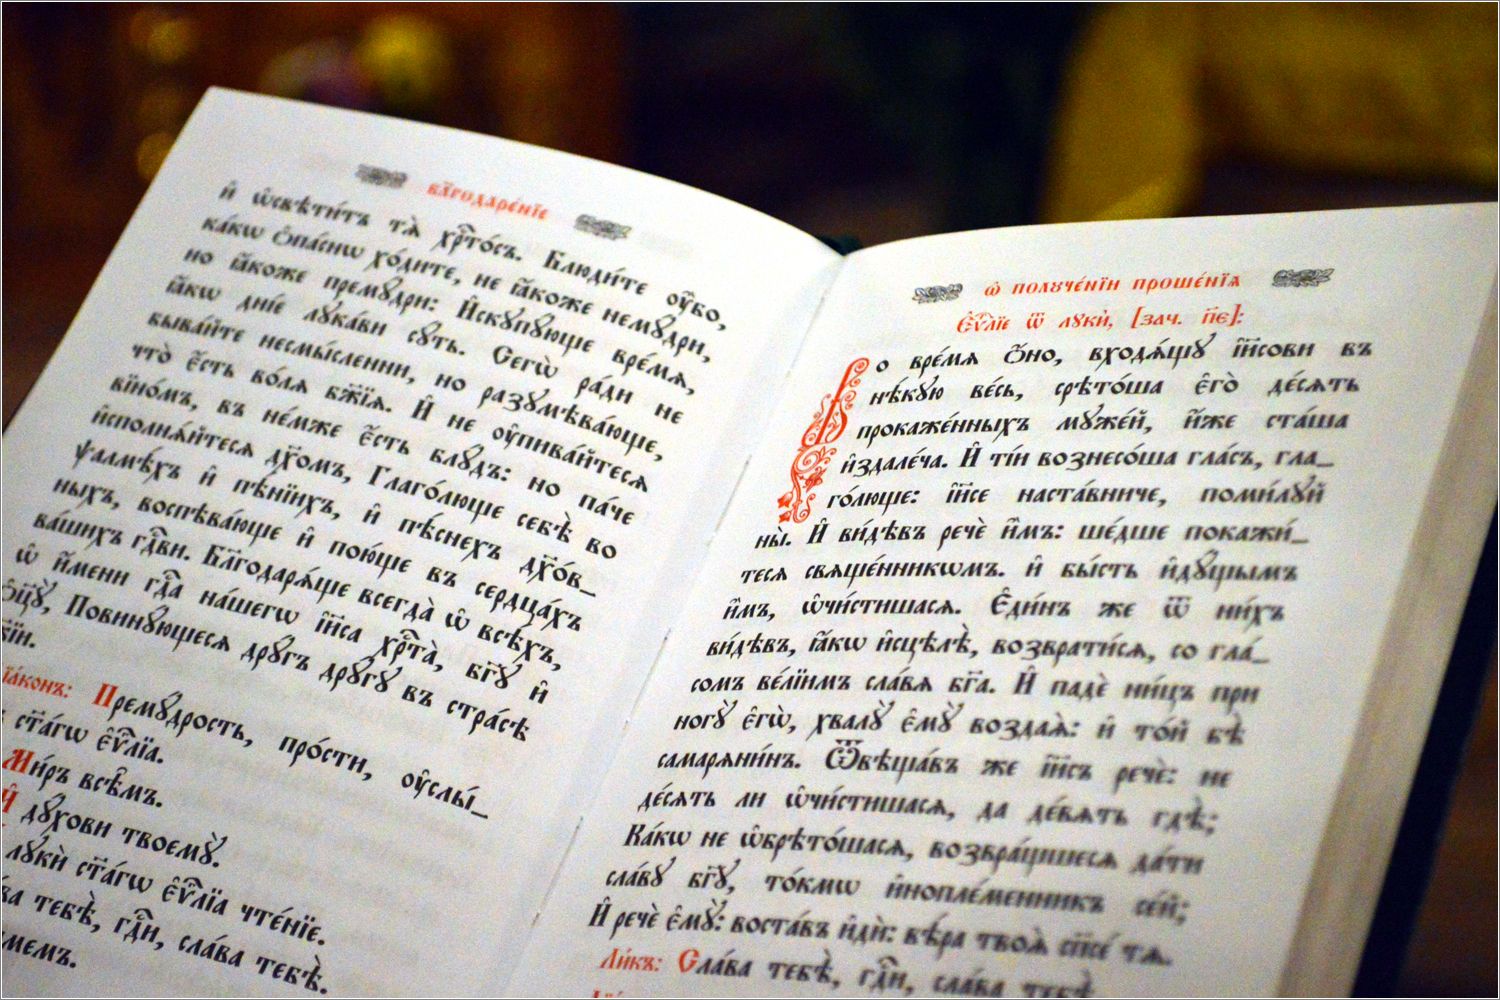 блг҃одаре́нїе
и҆ ѡ҆свѣти́тъ тѧ̀ хрⷭ҇то́съ. Блюди́те ᲂу҆̀бо,
ка́кѡ ѻ҆па́снѡ хо́дите, не ꙗ҆́коже немꙋ́дри,
но ꙗ҆́коже премꙋ́дри: И҆скꙋпꙋ́юще вре́мѧ,
ꙗ҆́кѡ дні́е лꙋка́ви сꙋ́ть. Сегѡ̀ ра́ди не
быва́йте несмы́сленни, но разꙋмѣва́юще,
что̀ є҆́сть во́лѧ бж҃їѧ. И҆ не ᲂу҆пива́йтесѧ
вїно́мъ, въ не́мже є҆́сть блꙋ́дъ: но па́че
и҆сполнѧ́йтесѧ дх҃омъ, Глаго́люще себѣ̀ во
ѱалмѣ́хъ и҆ пѣ́нїихъ, и҆ пѣ́снехъ дꙋхо́в_
ныхъ, воспѣва́юще и҆ пою́ще въ сердца́хъ
ва́шихъ гдⷭ҇ви. Благодарѧ́ще всегда̀ ѡ҆ всѣ́хъ,
ѡ҆ и҆́мени гдⷭ҇а на́шегѡ і҆и҃са хрⷭ҇та̀, бг҃ꙋ и҆
ѻ҆ц҃ꙋ̀, Повинꙋ́ющесѧ дрꙋ́гъ дрꙋ́гꙋ въ стра́сѣ
бж҃їи.
їа́конъ: Премꙋ́дрость, про́сти, ᲂу҆слы́_
ст҃а́гѡ є҆ѵⷢ҇лїа.
Ми́ръ всѣ̑мъ.
И҆ дꙋ́хови твоемꙋ̀.
лꙋкѝ ст҃а́гѡ є҆ѵⷢ҇лїа чте́нїе.
ва тебѣ̀, гдⷭ҇и, сла́ва тебѣ̀.
мемъ.
ѡ҆ полꙋче́нїи проше́нїѧ
Є҆ѵⷢ҇лїе ѿ лꙋкѝ, [зач. п҃є]:
Во вре́мѧ ѻ҆́но, входѧ́щꙋ і҆и҃сови въ
нѣ́кꙋю ве́сь, срѣто́ша є҆го̀ де́сѧть
прокаже́нныхъ мꙋже́й, и҆̀же ста́ша
и҆здале́ча. И҆ ті́и вознесо́ша гла́съ, гла_
го́люще: і҆и҃се наста́вниче, поми́лꙋй
ны̀. И҆ ви́дѣвъ речѐ и҆̀мъ: ше́дше покажи́_
тесѧ свѧще́нникѡмъ. и҆ бы́сть и҆дꙋ́щымъ
и҆̀мъ, ѡ҆чи́стишасѧ. Є҆ди́нъ же ѿ ни́хъ
ви́дѣвъ, ꙗ҆́кѡ и҆сцѣлѣ̀, возврати́сѧ, со гла_
сомъ ве́лїимъ сла́вѧ бг҃а. И҆ падѐ ни́цъ при
ногꙋ̀ є҆гѡ̀, хвалꙋ̀ є҆мꙋ̀ воздаѧ̀: и҆ то́й бѣ̀
самарѧни́нъ. Ѿвѣща́въ же і҆и҃съ речѐ: не
де́сѧть ли ѡ҆чи́стишасѧ, да де́вѧть гдѣ̀;
Ка́кѡ не ѡ҆брѣто́шасѧ, возвра́щшесѧ да́ти
сла́вꙋ бг҃ꙋ, то́кмѡ и҆ноплеме́нникъ се́й;
И҆ речѐ є҆мꙋ̀: воста́въ и҆дѝ: вѣ́ра твоѧ̀ сп҃се́ тѧ.
Ли́къ: Сла́ва тебѣ̀, гдⷭ҇и, сла́ва тебѣ̀.